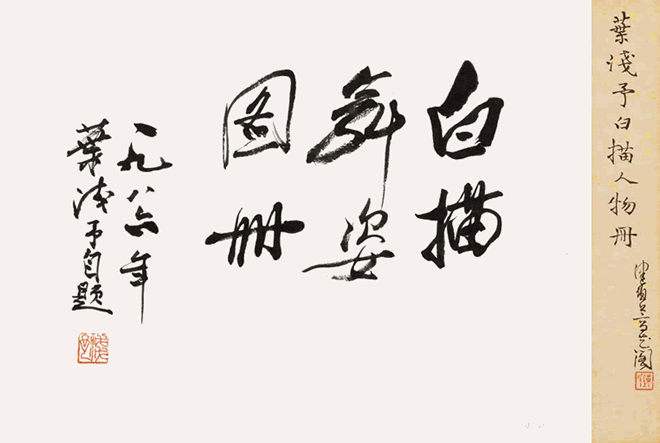 葉淺予白描人物冊
白描
舞姿
图冊
一九八六年
葉浅予自题